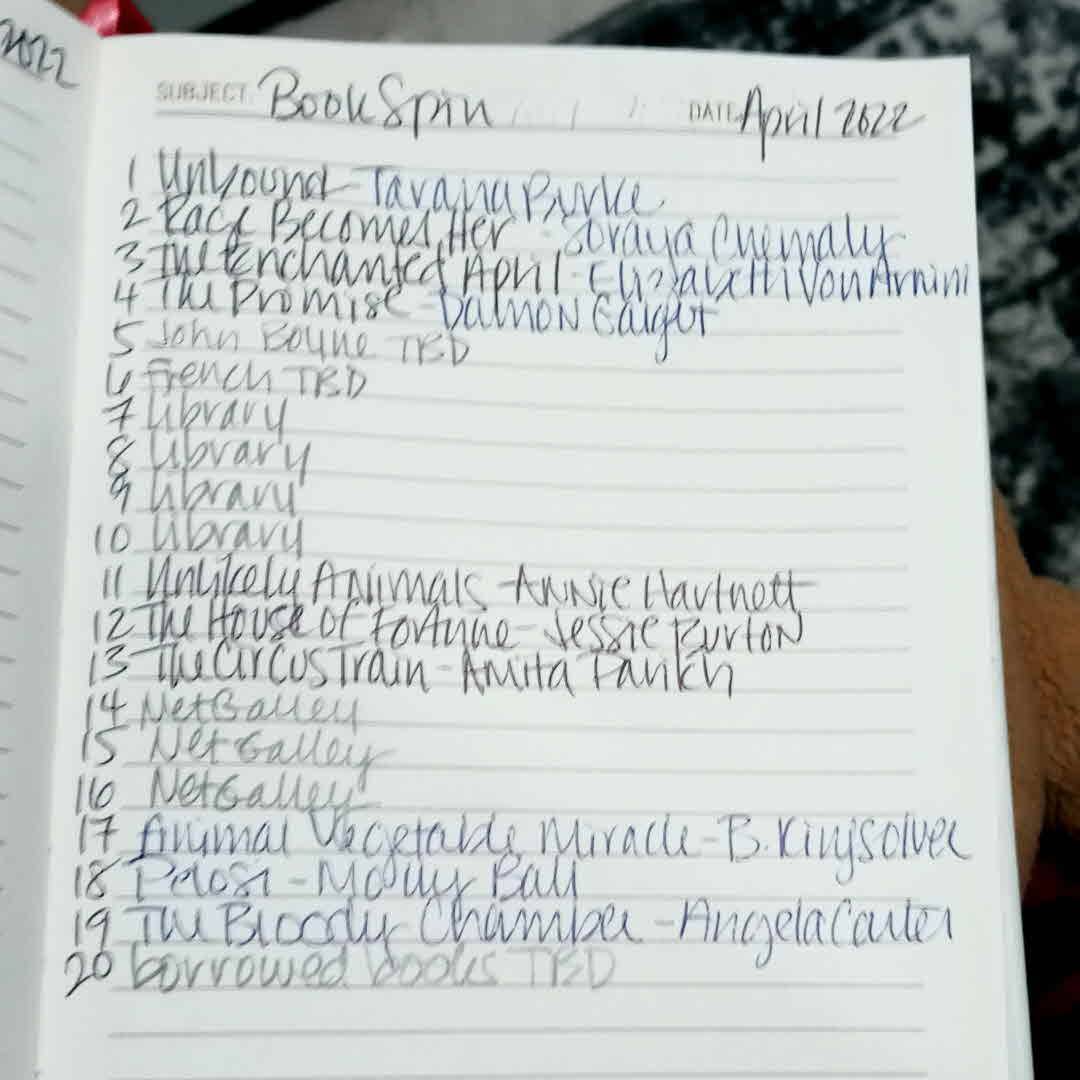 2022
SUBJECT: BookSpin DATE April 2022
1 Unbound - Tarana Burke
2 Rage Becomes Her - Soraya Chemaly
3 The Enchanted April - Elizabeth Von Arnim
4 The Promise - Damon Galgut
5 John Boyne TBD
6 French TBD
7 Library
8 Library
9 Library
10 Library
11 Unlikely Animals - Annie Hartnett
12 The House of Fortune - Jessie Burton
13 The Circus Train - Amita Parikh
14 NetGalley
15 NetGalley
16 NetGalley
17 Animal Vegetable Miracle - B. Kingsolver
18 Pelosi - Molly Ball
19 The Bloody Chamber - Angela Carter
20 borrowed books TBD